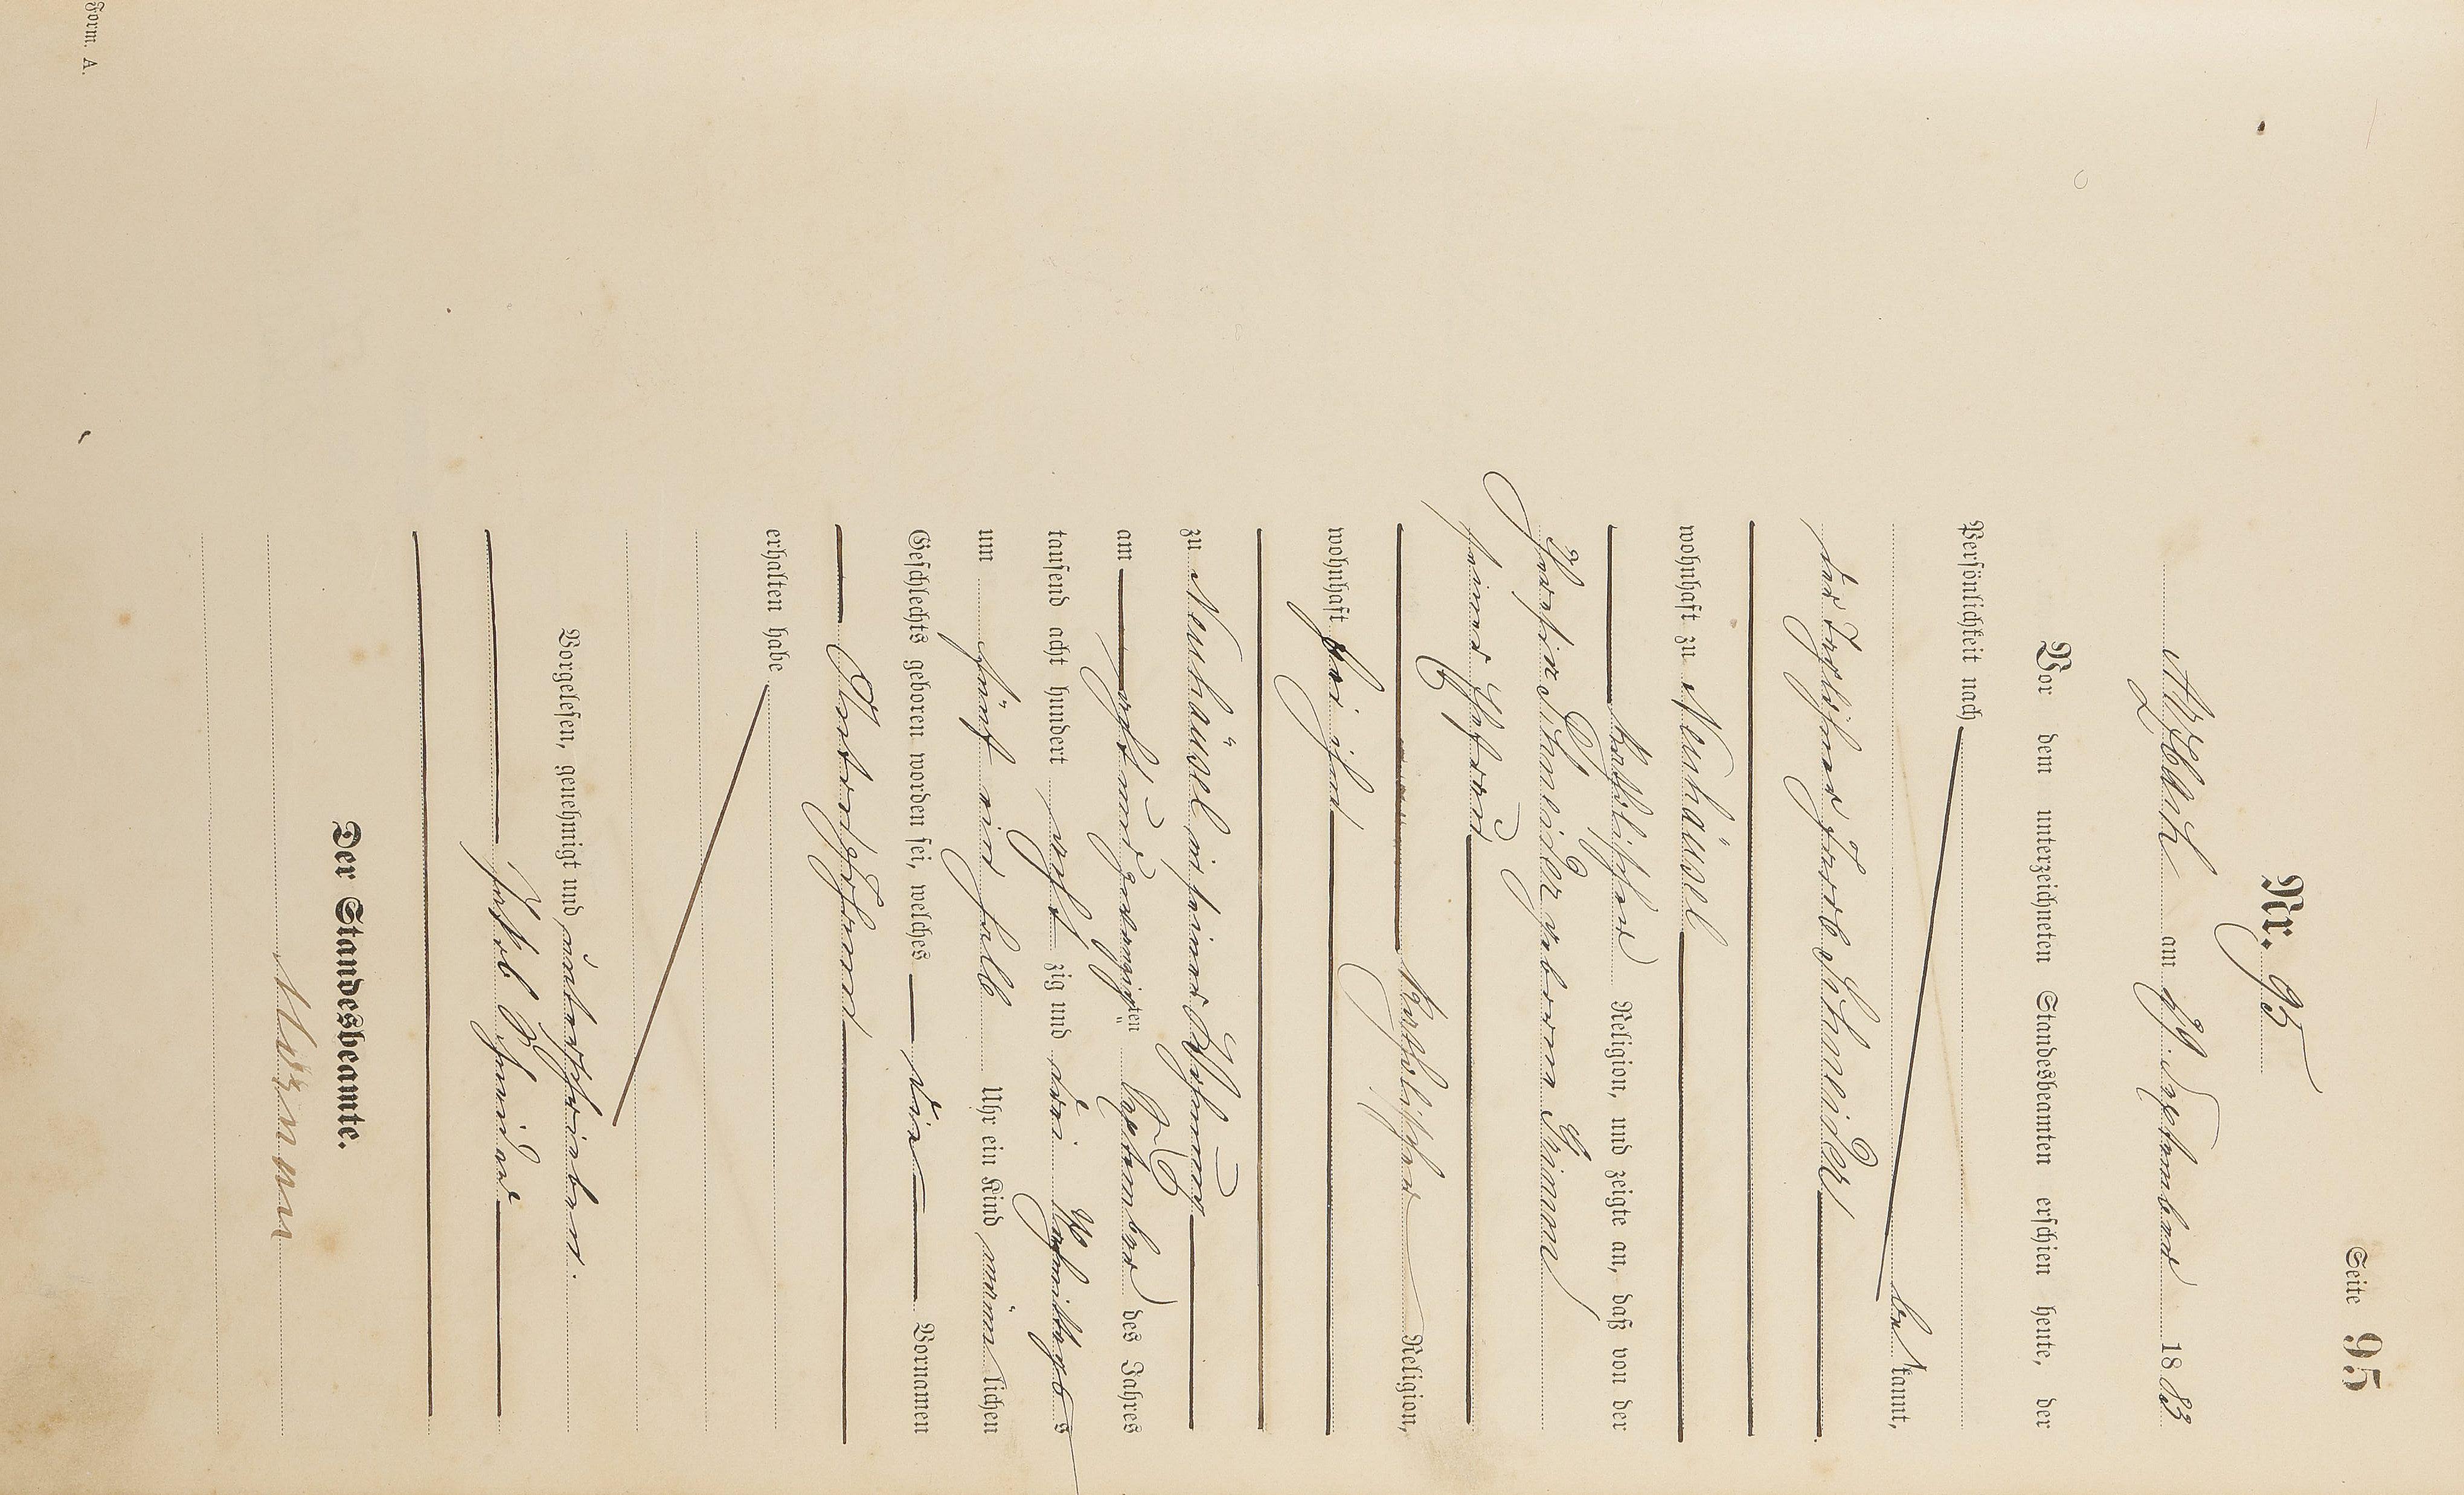 Seite 95
Nr. 95
Arzbach am 29. September 1883
Vor dem unterzeichneten Standesbeamten erschien heute, der
Persönlichkeit nach
bekannt,
der Taglöhner Jacob Schneider
wohnhaft zu Neuhäusel
katholischer Religion, und zeigte an, daß von der
Schneider geborene
seiner Ehefrau
katholischer Religion,
wohnhaft bei ihm
zu Neuhäusel in seiner Wohnung
am acht und zwanzigsten September des Jahres
tausend acht hundert acht zig und drei Nachmittags
um fünf ein halb Uhr ein Kind männlichen
Geschlechts geboren worden sei, welches die Vornamen
erhalten habe
Vorgelesen, genehmigt und unterschrieben.
Jakob Schneider
Der Standesbeamte.
Form. A.